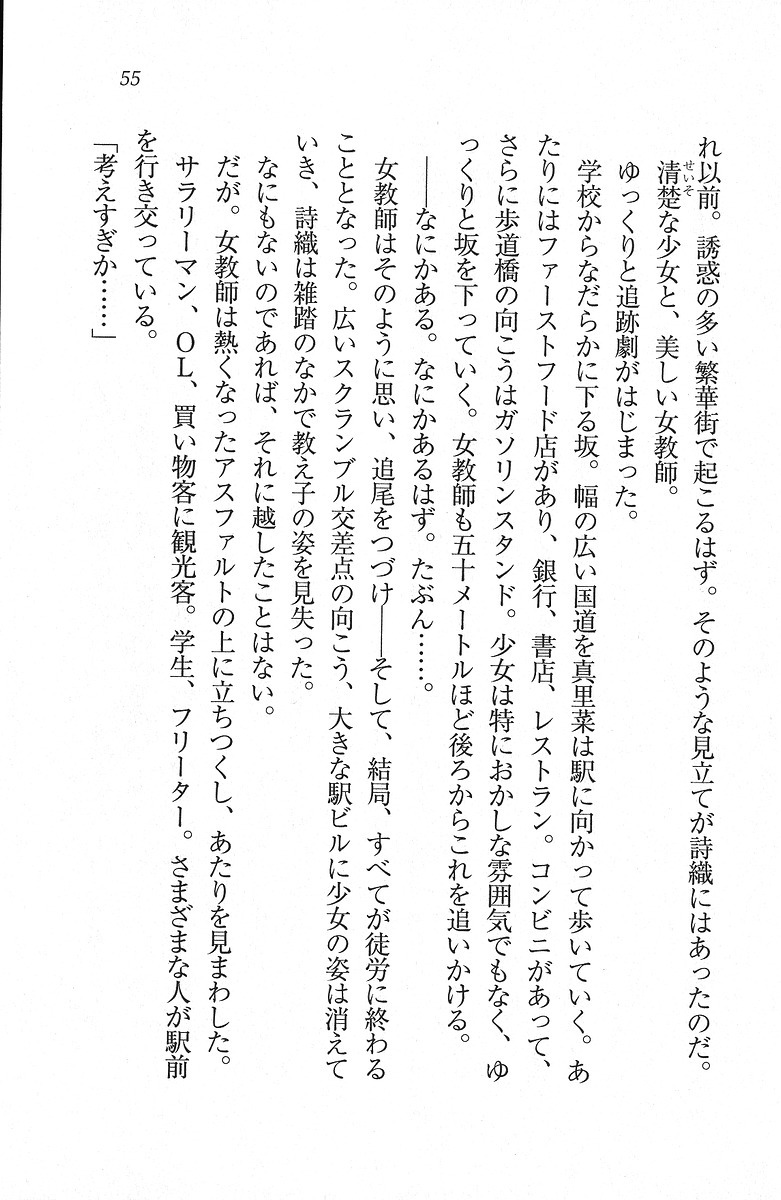 55
れ以前。誘惑の多い繁華街で起こるはず。そのような見立てが詩織にはあったのだ。
清楚な少女と、美しい女教師。
せいそ
ゆっくりと追跡劇がはじまった。
学校からなだらかに下る坂。幅の広い国道を真里菜は駅に向かって歩いていく。あ
たりにはファーストフード店があり、銀行、書店、レストラン。コンビニがあって、
さらに歩道橋の向こうはガソリンスタンド。少女は特におかしな雰囲気でもなく、ゆ
っくりと坂を下っていく。女教師も五十メートルほど後ろからこれを追いかける。
――なにかある。なにかあるはず。たぶん……。
女教師はそのように思い、追尾をつづけ――そして、結局、すべてが徒労に終わる
こととなった。広いスクランブル交差点の向こう、大きな駅ビルに少女の姿は消えて
いき、詩織は雑踏のなかで教え子の姿を見失った。
なにもないのであれば、それに越したことはない。
だが。女教師は熱くなったアスファルトの上に立ちつくし、あたりを見まわした。
サラリーマン、OL、買い物客に観光客。学生、フリーター。さまざまな人が駅前
を行き交っている。
「考えすぎか……」